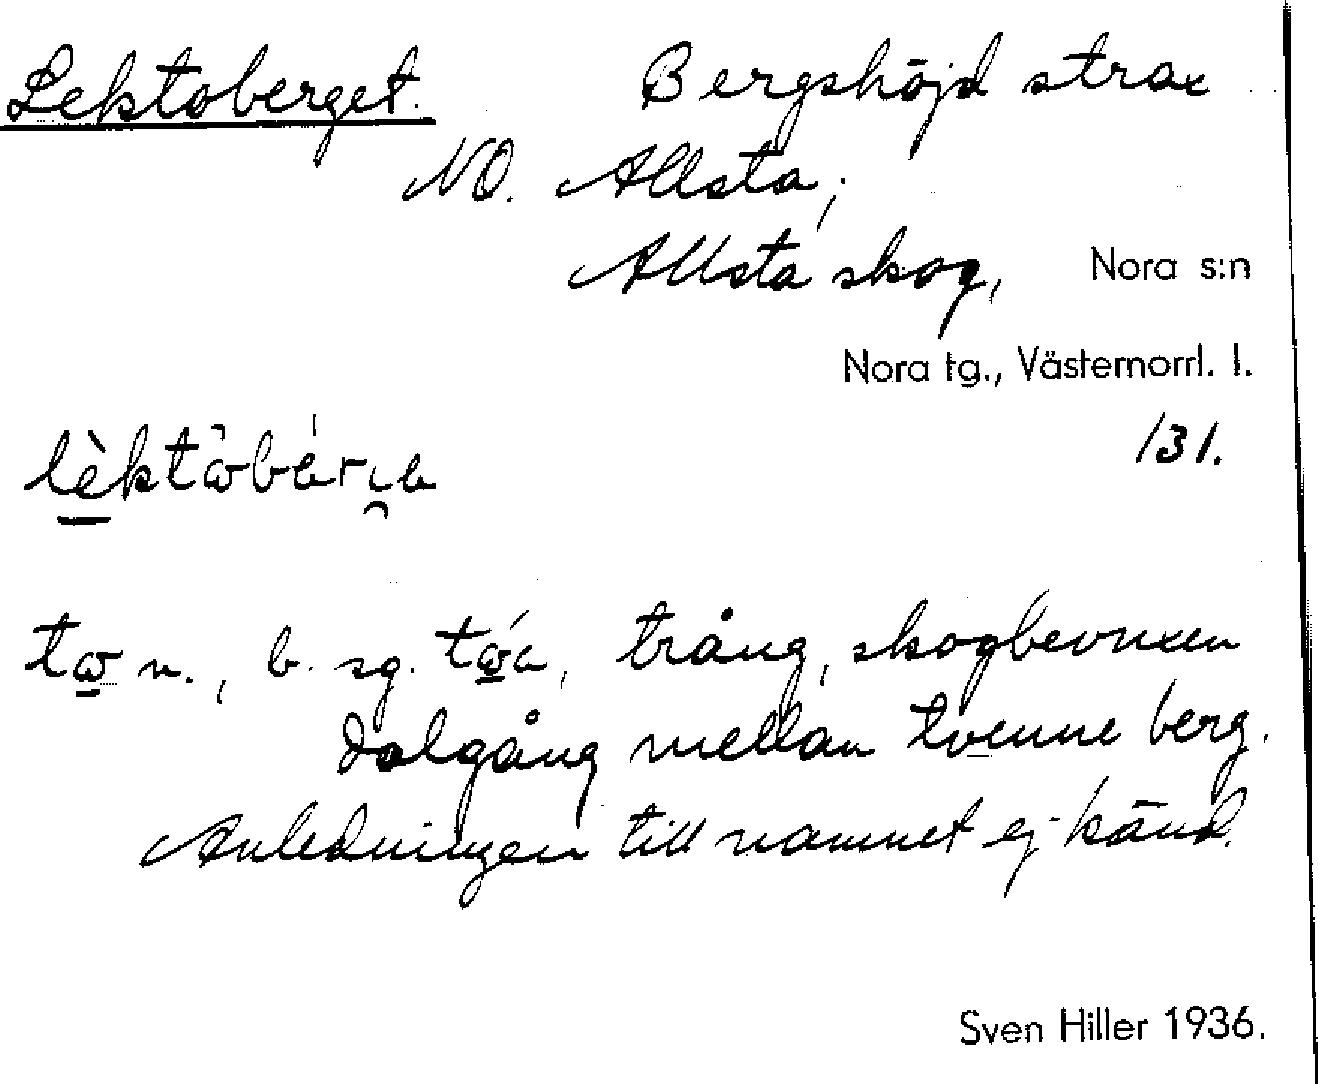 Lektoberget. Bergshöjd strax
NO. Allsta;
Allsta skog, Nora s:n
Nora tg., Västernorrl. l.
131.
n., b. sg. trång, skogbevuxen
dalgång mellan tvenne berg.
Anledningen till namnet ej känd.
Sven Hiller 1936.